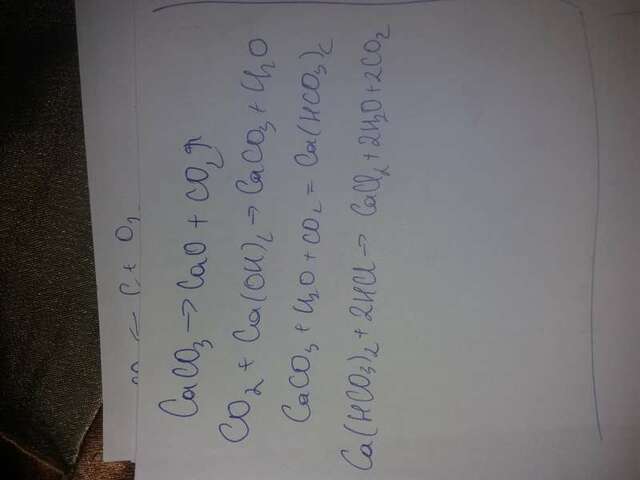 CaCO₃ → CaO + CO₂↑
CO₂ + Ca(OH)₂ → CaCO₃ + H₂O
CaCO₃ + H₂O + CO₂ = Ca(HCO₃)₂
Ca(HCO₃)₂ + 2HCl → CaCl₂ + 2H₂O + 2CO₂